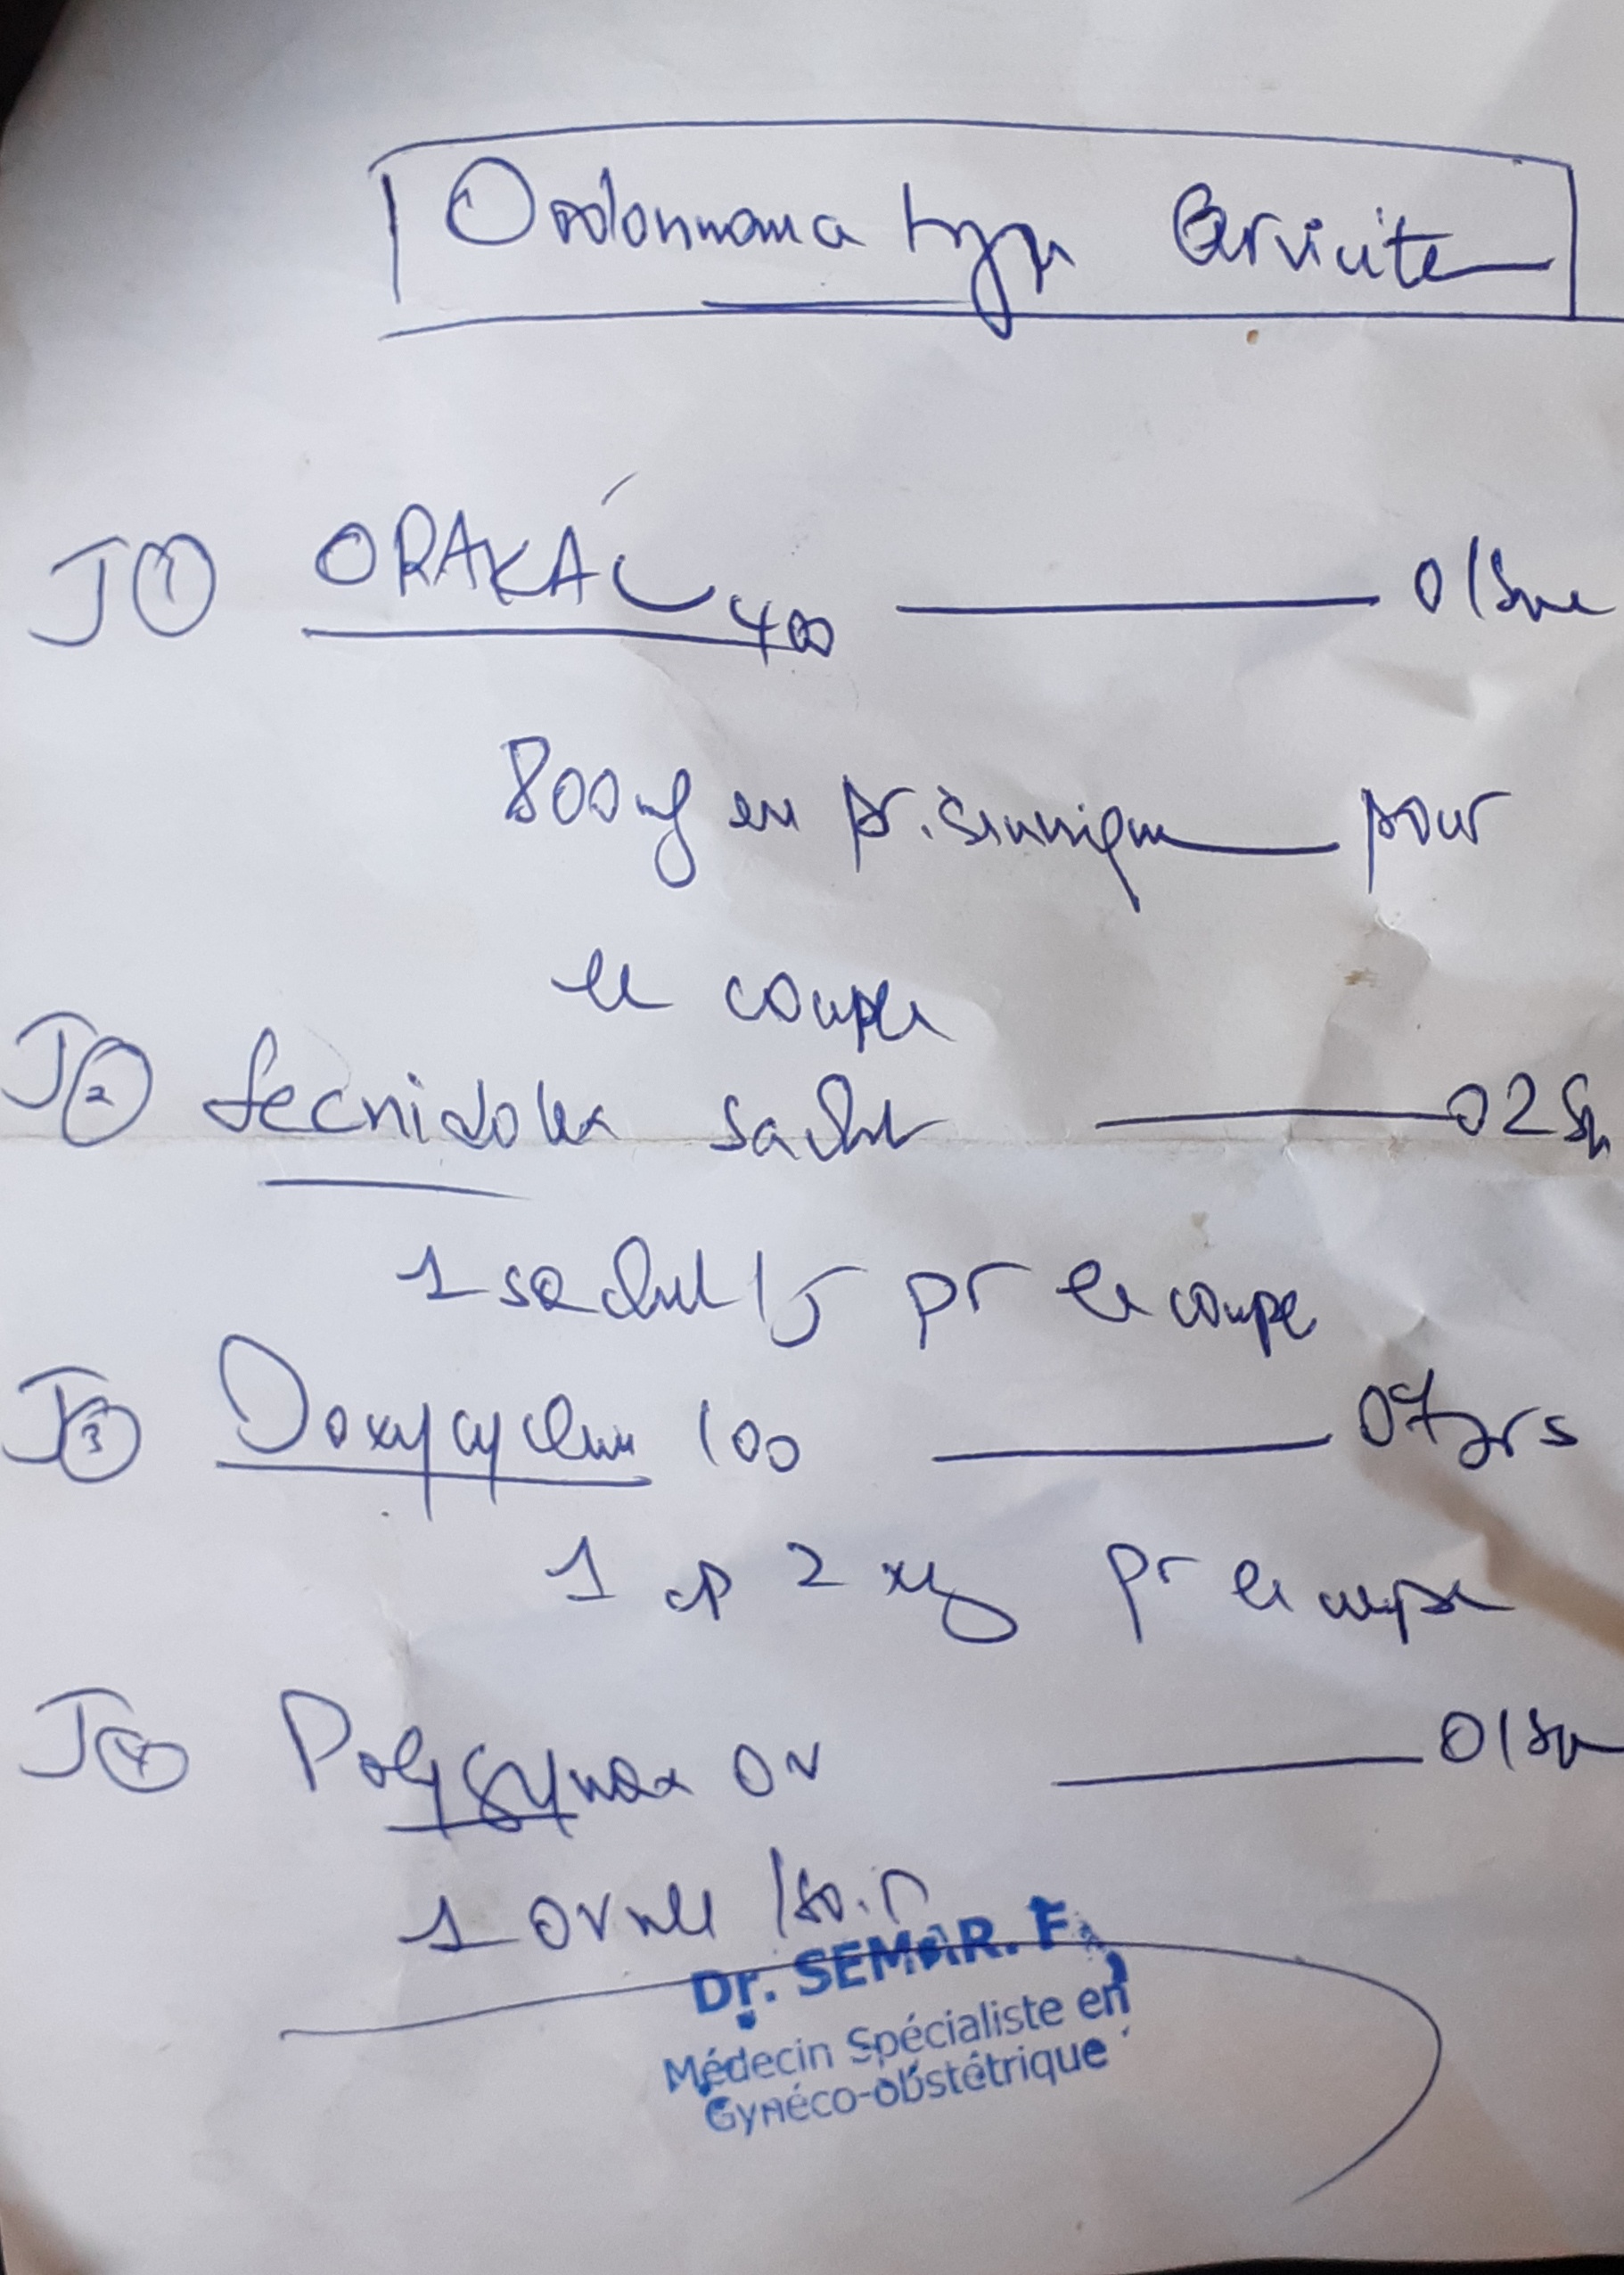 Ordonnance type Cervicite
J① ORAKAC 400 —— 01 sme
800 mg en pr. séunique —— pour
le couple
J② Secnidolex sachet —— 02 Sh
1 sachet / J pr le couple
J③ Doxycycline 100 —— 07 jrs
1 cp 2 x/j pr le couple
J④ Polygynax ov ——
1 ovule / soir
Dr. SEMAR. F
Médecin Spécialiste en
Gynéco-obstétrique